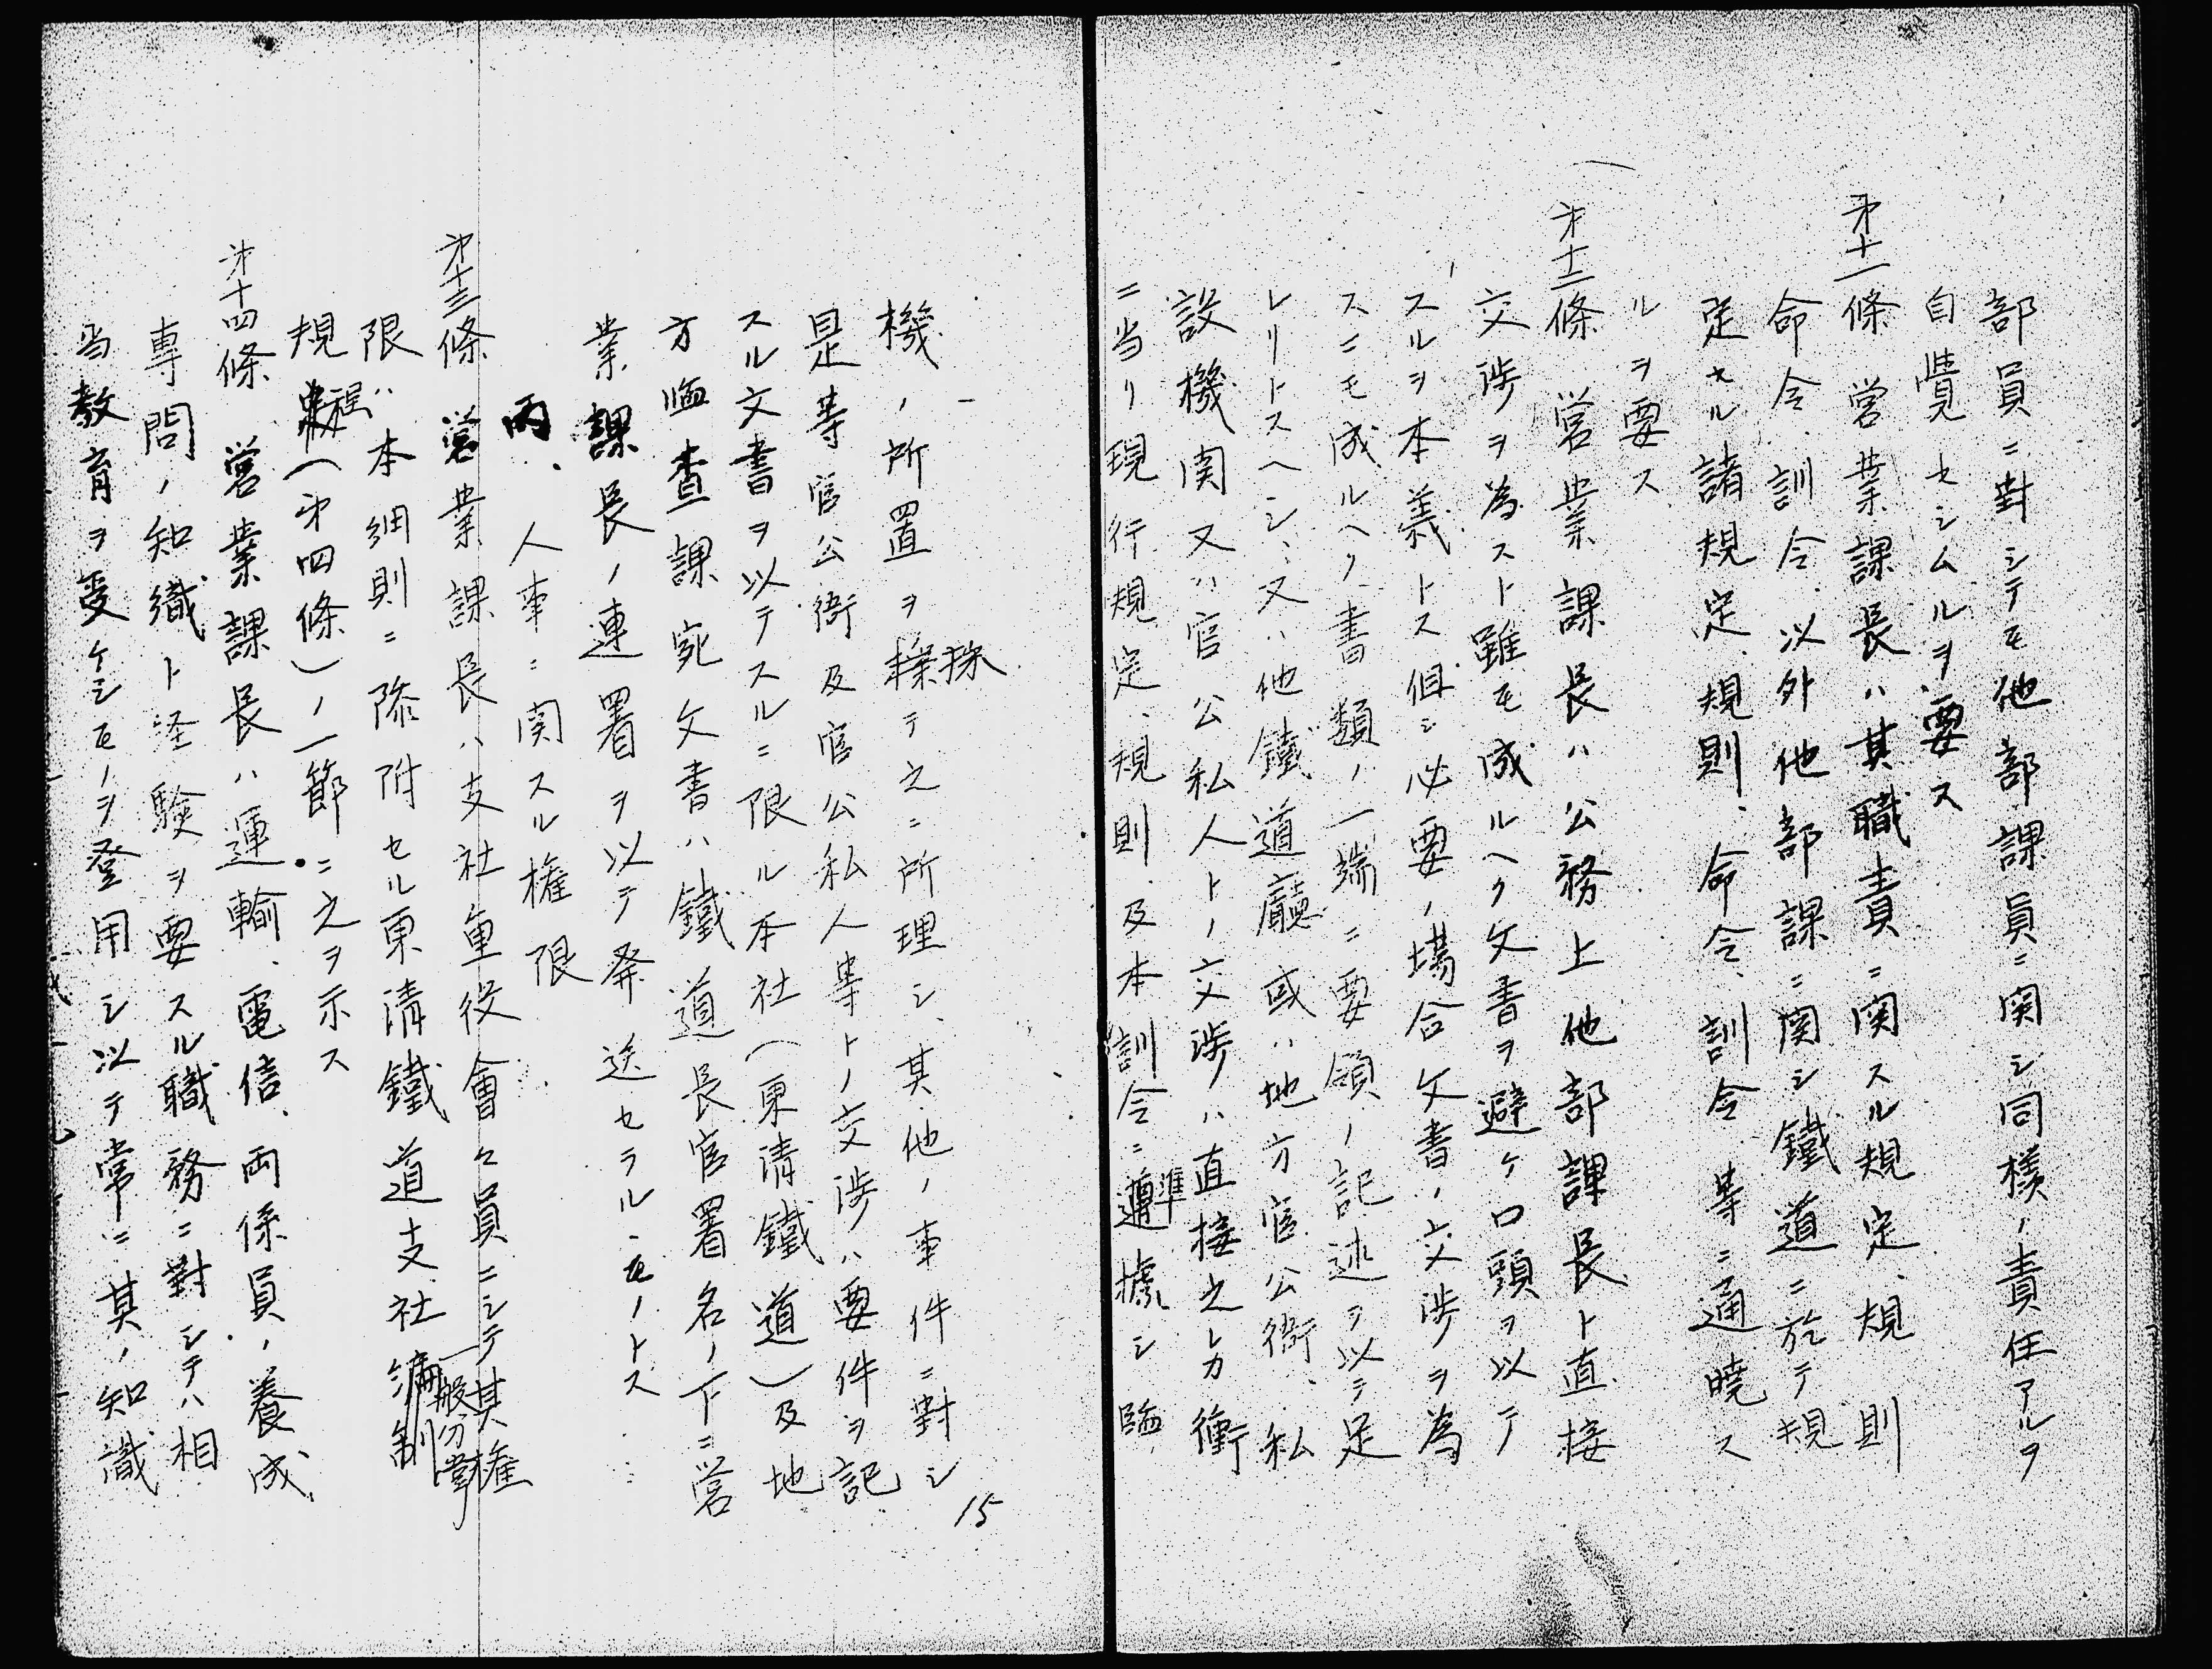 部員ニ對シテモ他部課員ニ関シ同様ノ責任アルヲ
自覺セシムルヲ要ス
第十一條 営業課長ハ其職責ニ関スル規定、規則
命令、訓令、以外他部課ニ関シ鐵道ニ於テ規
定セル諸規定、規則、命令、訓令等ニ通曉ス
ルヲ要ス
第十二條 営業課長ハ公務上他部課長ト直接
交渉ヲ為スト雖モ成ルヘク文書ヲ避ケ口頭ヲ以テ
スルヲ本義トス但シ必要ノ場合文書ノ交渉ヲ為
スニモ成ルヘク書類ノ一端ニ要領ノ記述ヲ以テ足
レリトスヘシ、又ハ他鐵道廳或ハ地方官公衙、私
設機関又ハ官公私人トノ交渉ハ直接之レカ衝
ニ当リ現行規定、規則及本訓令ニ準據シ臨
機ノ所置ヲ採テ之ニ所理シ、其他ノ事件ニ對シ
是等官公衙及官公私人等トノ交渉ハ要件ヲ記
スル文書ヲ以テスルニ限ル本社(東清鐵道)及地
方臨査課宛文書ハ鐵道長官署名ノ下ニ営
業課長ノ連署ヲ以テ発送セラルモノトス
丙、人事ニ関スル権限
第十三條 営業課長ハ支社重役會々員ニシテ其権
限ハ本細則ニ添附セル東清鐵道支社一般分掌
規程(第四條)ノ一節ニ之ヲ示ス
第十四條 営業課長ハ運輸、電信、両係員ノ養成、
專問ノ知織ト経験ヲ要スル職務ニ對シテハ相
当教育ヲ受ケシモノヲ登用シ以テ常ニ其ノ知識
15